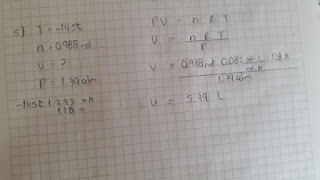 5) T = -145°C
n = 0.988 mol
V = ?
P = 1.79 atm
-145+273 = K
128 =
PV = n R T
V = n R T
P
V = 0.988 mol 0.082 atm L 128 K
mol K
1.79 atm
V = 5.79 L